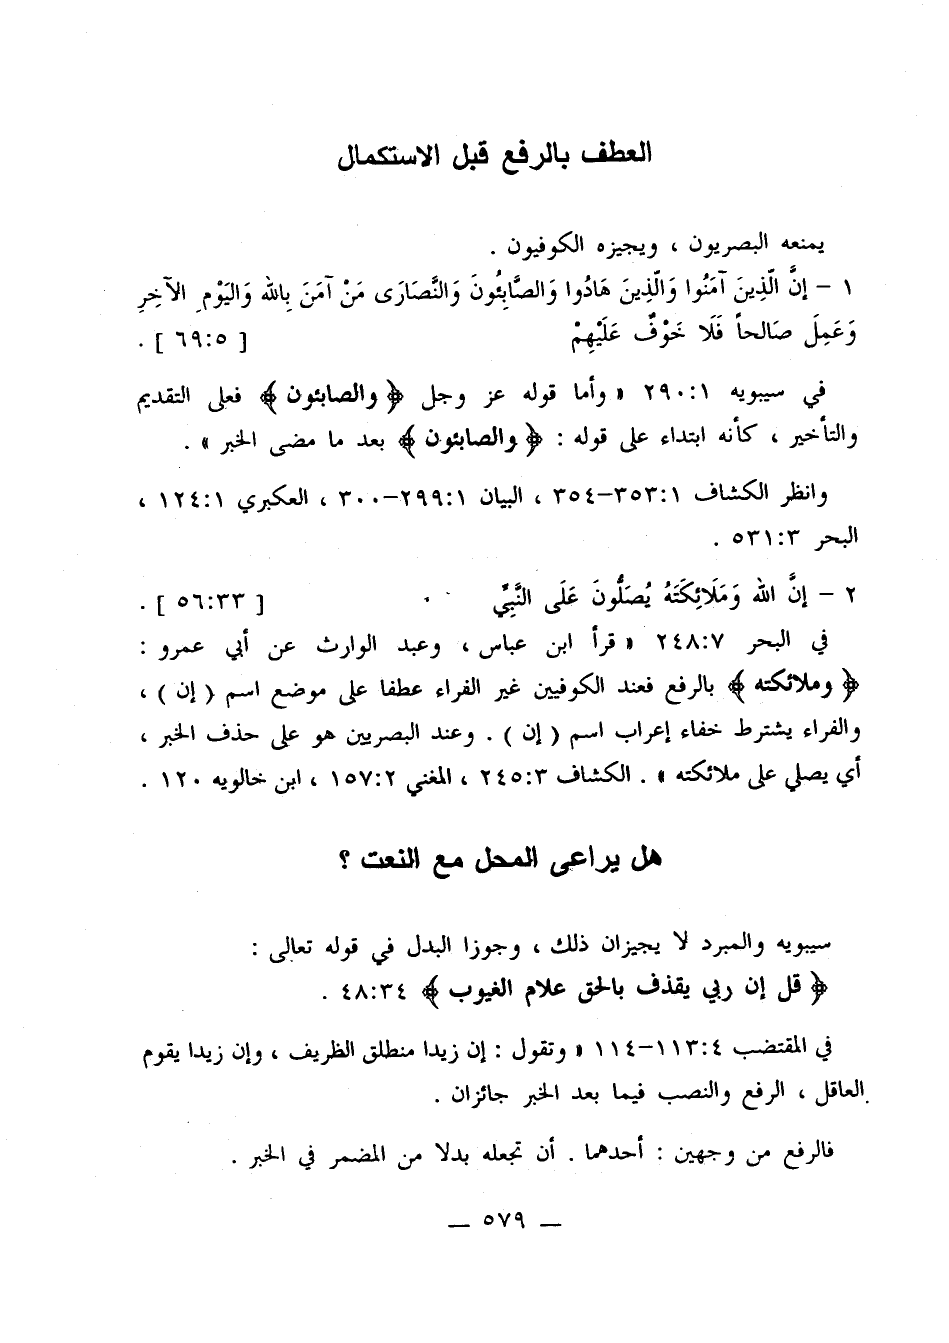 العطف بالرفع قبل الاستكمال
يمنعه البصريون ، ويجيزه الكوفيون .
١ – إنَّ الَّذِينَ آمَنُوا وَالَّذِينَ هَادُوا وَالصَّابِئُونَ وَالنَّصَارَى مَنْ آمَنَ بِالله وَاليَوْمِ الآخِرِ
وَعَمِلَ صَالحاً فَلَا خَوْفٌ عَلَيْهِمْ [ ٦٩:٥ ] .
في سيبويه ٢٩٠:١ « وأما قوله عز وجل ﴿ والصابئون ﴾ فعلى التقديم
والتأخير ، كأنه ابتداء على قوله : ﴿ والصابئون ﴾ بعد ما مضى الخبر » .
وانظر الكشاف ٣٥٣:١–٣٥٤ ، البيان ٢٩٩:١–٣٠٠ ، العكبري ١٢٤:١ ،
البحر ٥٣١:٣ .
٢ – إنَّ الله وَمَلَائِكَتَهُ يُصَلُّونَ عَلَى النَّبِيِّ [ ٥٦:٣٣ ] .
في البحر ٢٤٨:٧ « قرأ ابن عباس ، وعبد الوارث عن أبي عمرو :
﴿ وملائكته ﴾ بالرفع فعند الكوفيين غير الفراء عطفا على موضع اسم ( إن ) ،
والفراء يشترط خفاء إعراب اسم ( إن ) . وعند البصريين هو على حذف الخبر ،
أي يصلي على ملائكته » . الكشاف ٢٤٥:٣ ، المغني ١٥٧:٢ ، ابن خالويه ١٢٠ .
هل يراعى المحل مع النعت ؟
سيبويه والمبرد لا يجيزان ذلك ، وجوزا البدل في قوله تعالى :
﴿ قل إن ربي يقذف بالحق علام الغيوب ﴾ ٤٨:٣٤ .
في المقتضب ١١٣:٤–١١٤ « وتقول : إن زيدا منطلق الظريف ، وإن زيدا يقوم
العاقل ، الرفع والنصب فيما بعد الخبر جائزان .
فالرفع من وجهين : أحدهما . أن تجعله بدلا من المضمر في الخبر .
— ٥٧٩ —